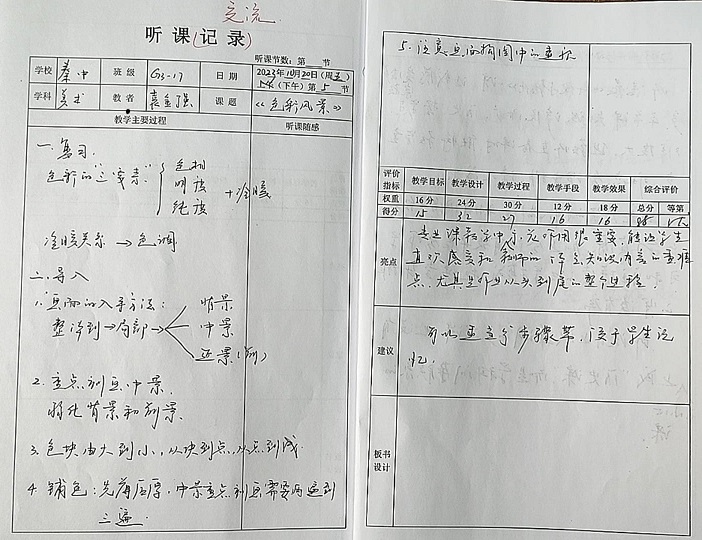 交流
听课(记录)
听课节数：第 节
学校 秦中 班级 G3-17 日期 2023年10月20日(周五)
上午(下午)第5节
学科 美术 教者 袁金强 课题 《色彩风景》
教学主要过程 听课随感
一.复习.
色彩的"三要素" 色相 明度 纯度 +冷暖
冷暖关系→色调
二.导入
1.画面的入手方法：
整体到→局部→ 背景 中景 近景(前)
2.重点刻画中景.
弱化背景和前景.
3.色块由大到小,从块到点,从点到线.
4.铺色：先薄后厚,中景重点刻画需要两遍到
三遍.
5.注意画面构图中的
评价指标 教学目标 教学设计 教学过程 教学手段 教学效果 综合评价
权重 16分 24分 30分 12分 18分 总分 等第
得分 15 27 16 16
亮点
专业课教学中示范作用很重要,能让学生
直观感受和老师的 知识内容的重难
点.尤其是作业从头到尾的整个过程.
建议
可以 步骤 ,便于学生记
忆.
板书设计